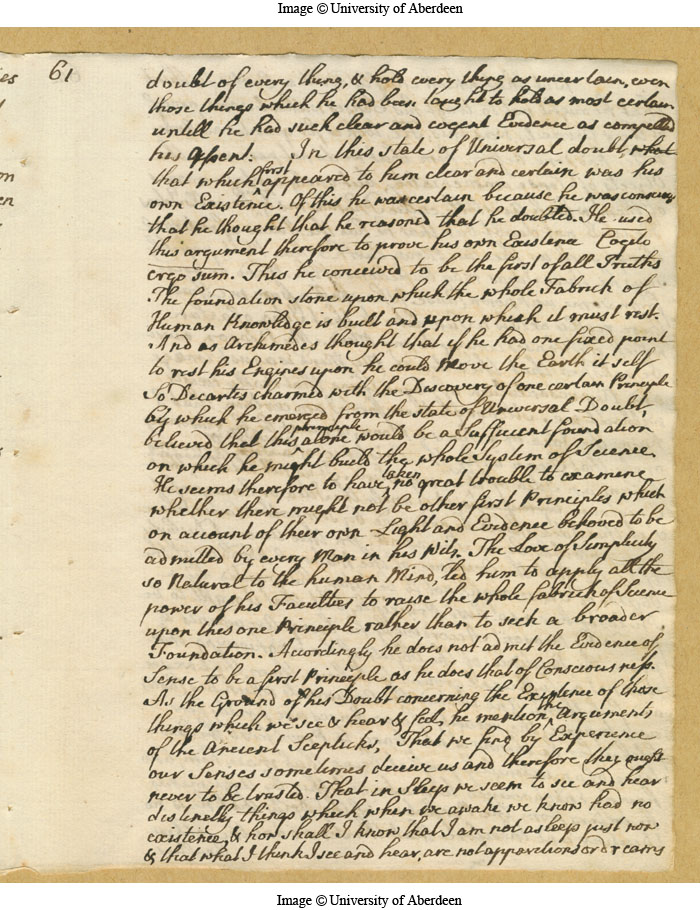 Image © University of Aberdeen
61
doubt of every thing, & hold every thing as uncertain, even
those things which he had been taught to hold as most certain
untill he had such clear and cogent Evidence as compelled
his Assent. In this state of Universal doubt, what
that which first appeared to him clear and certain was his
own Existence. Of this he was certain because he was conscious
that he thought that he reasoned that he doubted. He used
this argument therefore to prove his own Existence Cogito
ergo sum. This he conceived to be the first of all Truths
The foundation stone upon which the whole Fabrick of
Human Knowledge is built and upon which it must rest.
And as Archimedes thought that if he had one fixed point
to rest his Engines upon he could move the Earth it self
So Decartes charmed with the Discovery of one certain Principle
by which he emerged from the state of Universal Doubt,
believed that this principle alone would be a Sufficient foundation
on which he might build the whole System of Science.
He seems therefore to have taken no great trouble to examine
whether there might not be other first Principles which
on account of their own Light and Evidence behoved to be
admitted by every Man in his Wits. The Love of Simplicity
so Natural to the human Mind, led him to apply all the
power of his Faculties to raise the whole fabrick of Science
upon this one Principle rather than to seek a broader
Foundation. Accordingly he does not admit the Evidence of
Sense to be a first Principle as he does that of Consciousness.
As the Ground of his Doubt concerning the Existence of those
things which we see & hear & feel, he mentions the Arguments
of the Ancient Scepticks, That we find by Experience
our Senses sometimes deceive us and therefore they ought
never to be trusted. That in Sleep we seem to see and hear
distinctly things which when we awake we know had no
existence, & how shall I know that I am not asleep just now
& that what I think I see and hear, are not apparitions or dreams
Image © University of Aberdeen